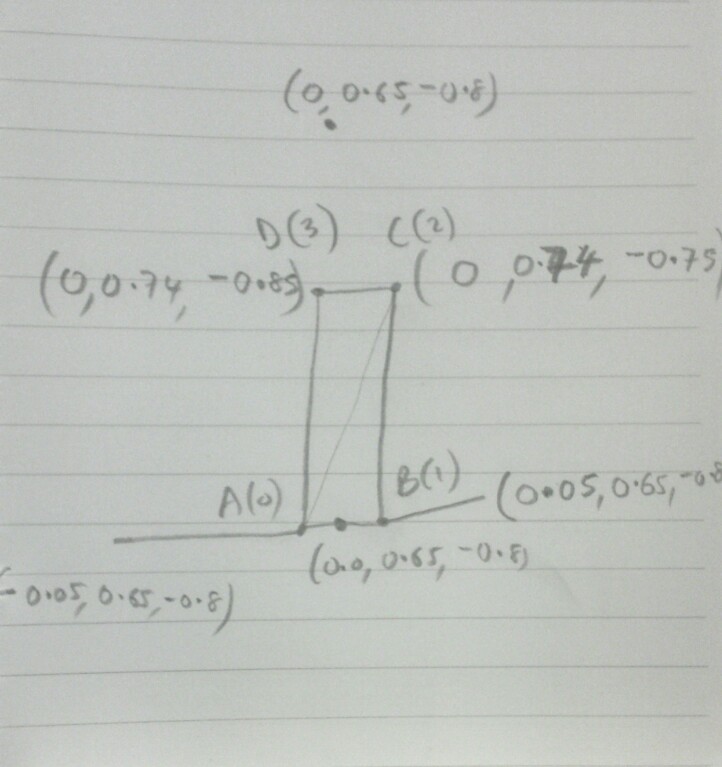 (0, 0.65, -0.8)
D(3) C(2)
(0, 0.74, -0.85) (0, 0.74, -0.75)
A(0) B(1) (0.05, 0.65, -0.8
(0.0, 0.65, -0.8)
- 0.05, 0.65, -0.8)